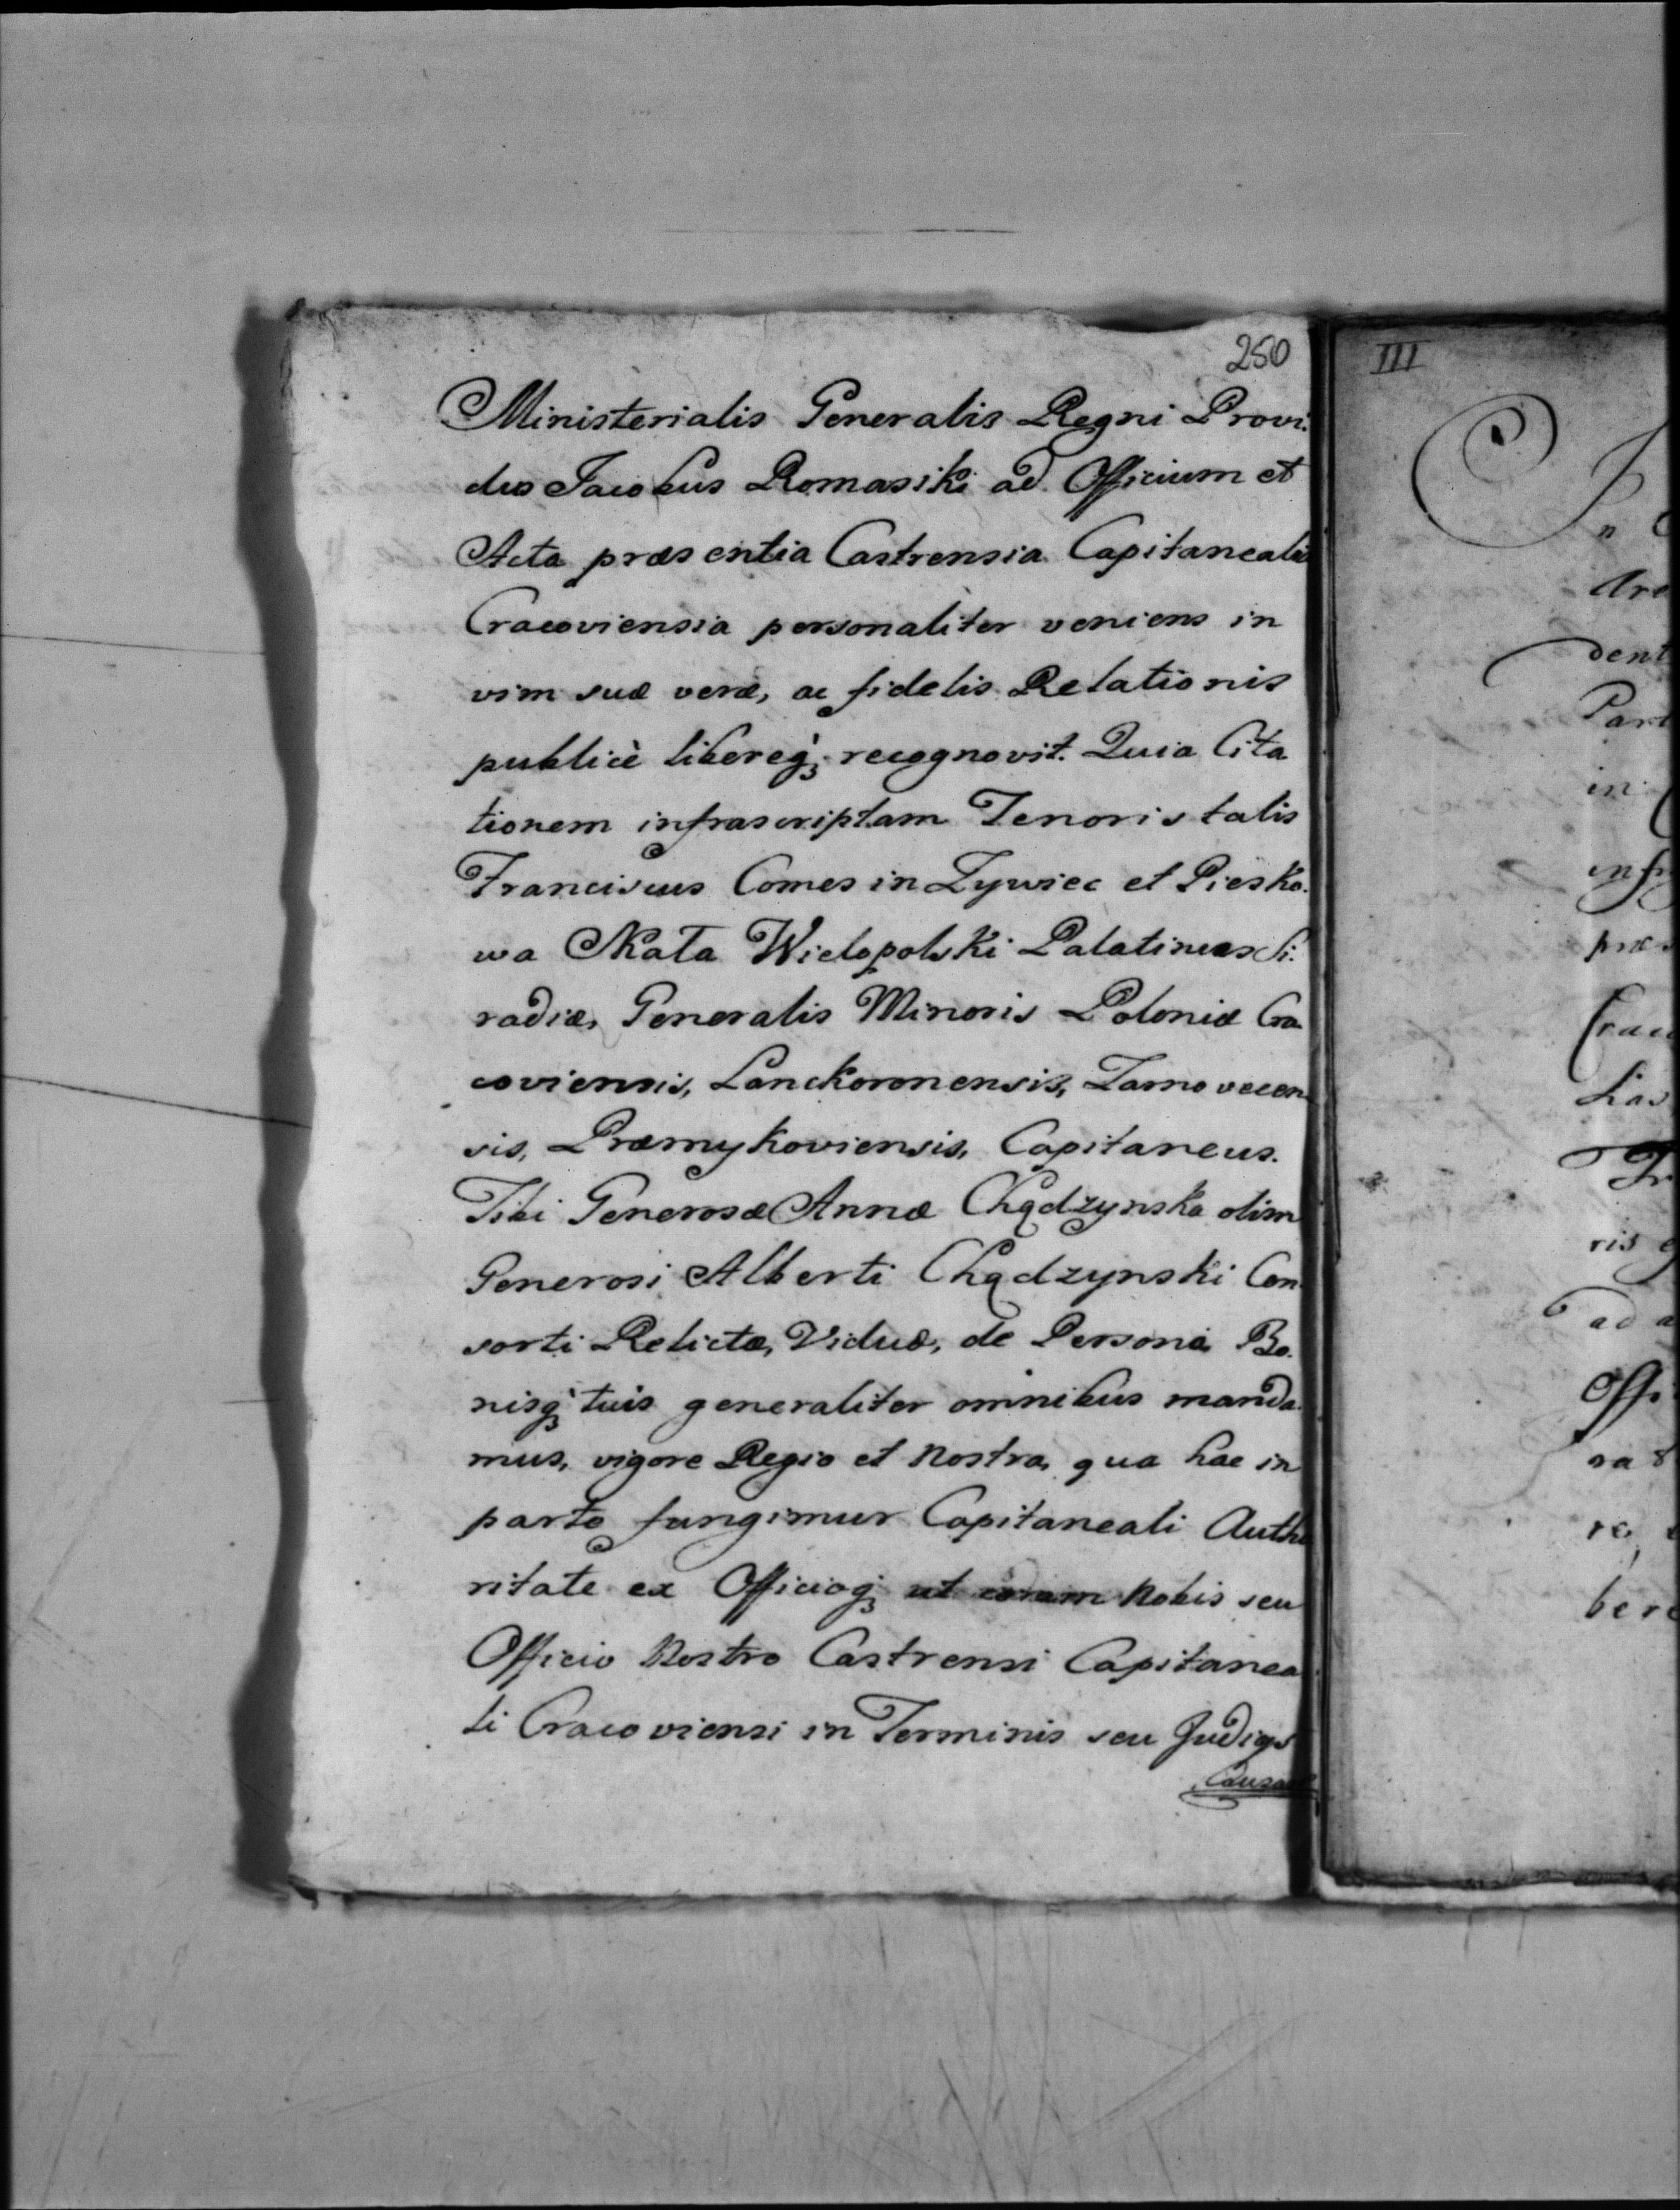 250
Ministerialis Generalis Regni Provi.
dus Jacobus Romasiki ad Officium et
Acta præsentia Castrensia Capitanealia
Cracoviensia personaliter veniens in
vim suæ veræ, ac fidelis Relationis
publicè libereq; recognovit. Quia Cita
tionem infrascriptam Tenoris talis
Franciscus Comes in Zywiec et Piesko.
wa Skała Wielopolski Palatinus Si.
radiæ, Generalis Minoris Poloniæ Cra
coviensis, Lanckoronensis, Tarnovecen
sis, Præmykoviensis, Capitaneus.
Tibi Generosæ Annæ Chądzynska olim
Generosi Alberti Chądzynski Con
sorti Relictæ, Viduæ, de Persona, Bo.
nisq; tuis generaliter omnibus manda.
mus, vigore Regio et Nostra, qua hac in
parte fungimur Capitaneali Autho
ritate ex Officioq; ut coram Nobis seu
Officio Nostro Castrensi Capitanea
li Cracoviensi in Terminis seu Judicys
III
In
dent
Part
in
infr
præs
Crac
Fr
ris
ad a
Offi
ra
re,
bere